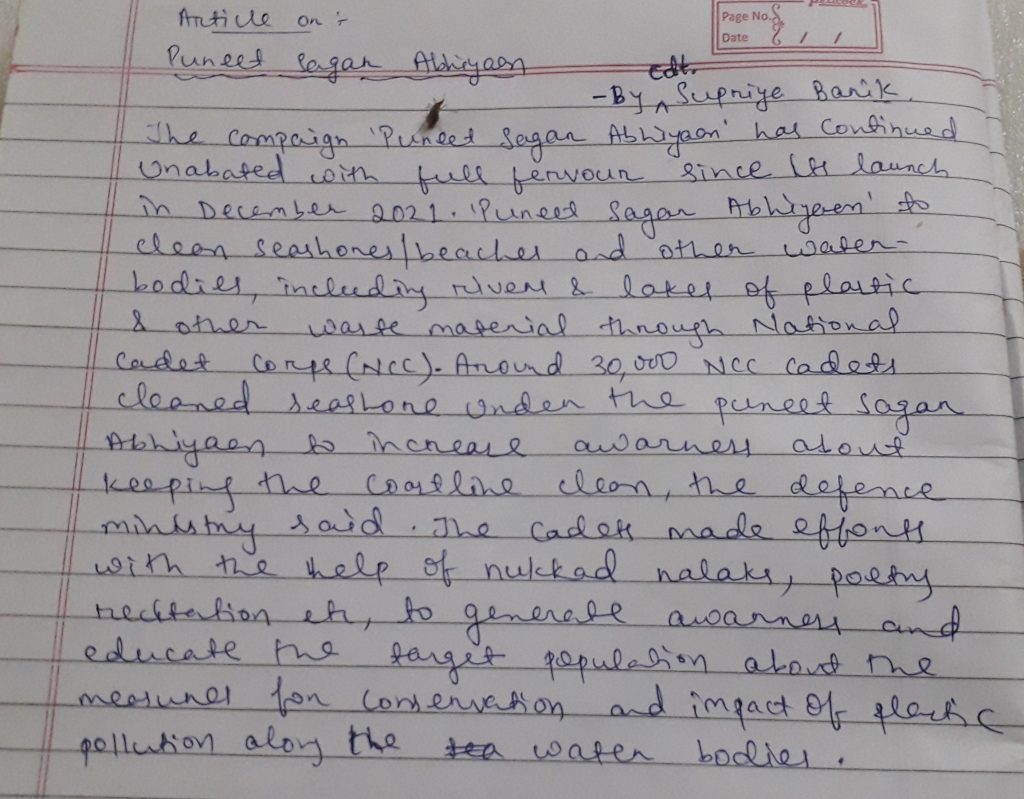 Article on :-
Page No.
Date / /
Puneet Sagar Abhiyaan
cdt.
- By ^ Supriye Banik.
The campaign 'Puneet Sagar Abhiyaan' has continued
unabated with full fervour since its launch
in December 2021. 'Puneet Sagar Abhiyaan' to
clean seashores/beaches and other water-
bodies, including rivers & lakes of plastic
& other waste material through National
Cadet Corps (NCC). Around 30,000 NCC cadets
cleaned seashore under the puneet sagar
Abhiyaan to increase awarness about
keeping the coastline clean, the defence
ministry said. The cadets made efforts
with the help of nukkad nalaks, poetry
recitation etc, to generate awarness and
educate the target population about the
measures for conservation and impact of plastic
pollution along the water bodies.